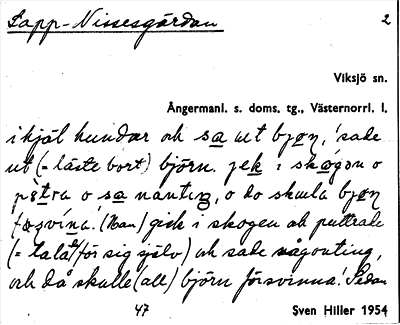 Lapp-Nissesgårdan 2
Viksjö sn.
Ångermanl. s. doms. tg., Västernorrl. l.
ihjäl hundar och sa ut bjøn, 'sade
ut (= läste bort) björn. jek i skøgøn o
petra o sa nanting, o do skula bjøn
(Han) gick i skogen och puttrade
(= talat för sig själv) och sade någonting,
och då skulle (all) björn försvinna! Sedan
47 Sven Hiller 1954